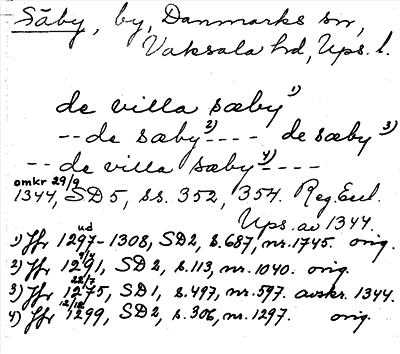 Säby, by, Danmarks sn,
Vaksala hd, Ups. l.
de villa sæby 1)
-- de sæby 2) ---- de sæby 3)
-- de villa sæby 4) ----
omkr 29/9
1344, SD 5, ss. 352, 354. Reg. Eccl.
Ups. av 1344.
ud
1) Jfr 1297-1308, SD2, s. 687, nr. 1745. orig.
2) Jfr 1291, SD 2, s. 113, nr. 1040. orig.
22/7
3) Jfr 1275, SD1, s. 497, nr. 597. avskr. 1344.
4) Jfr 1299, SD 2, s. 306, nr. 1297. orig.